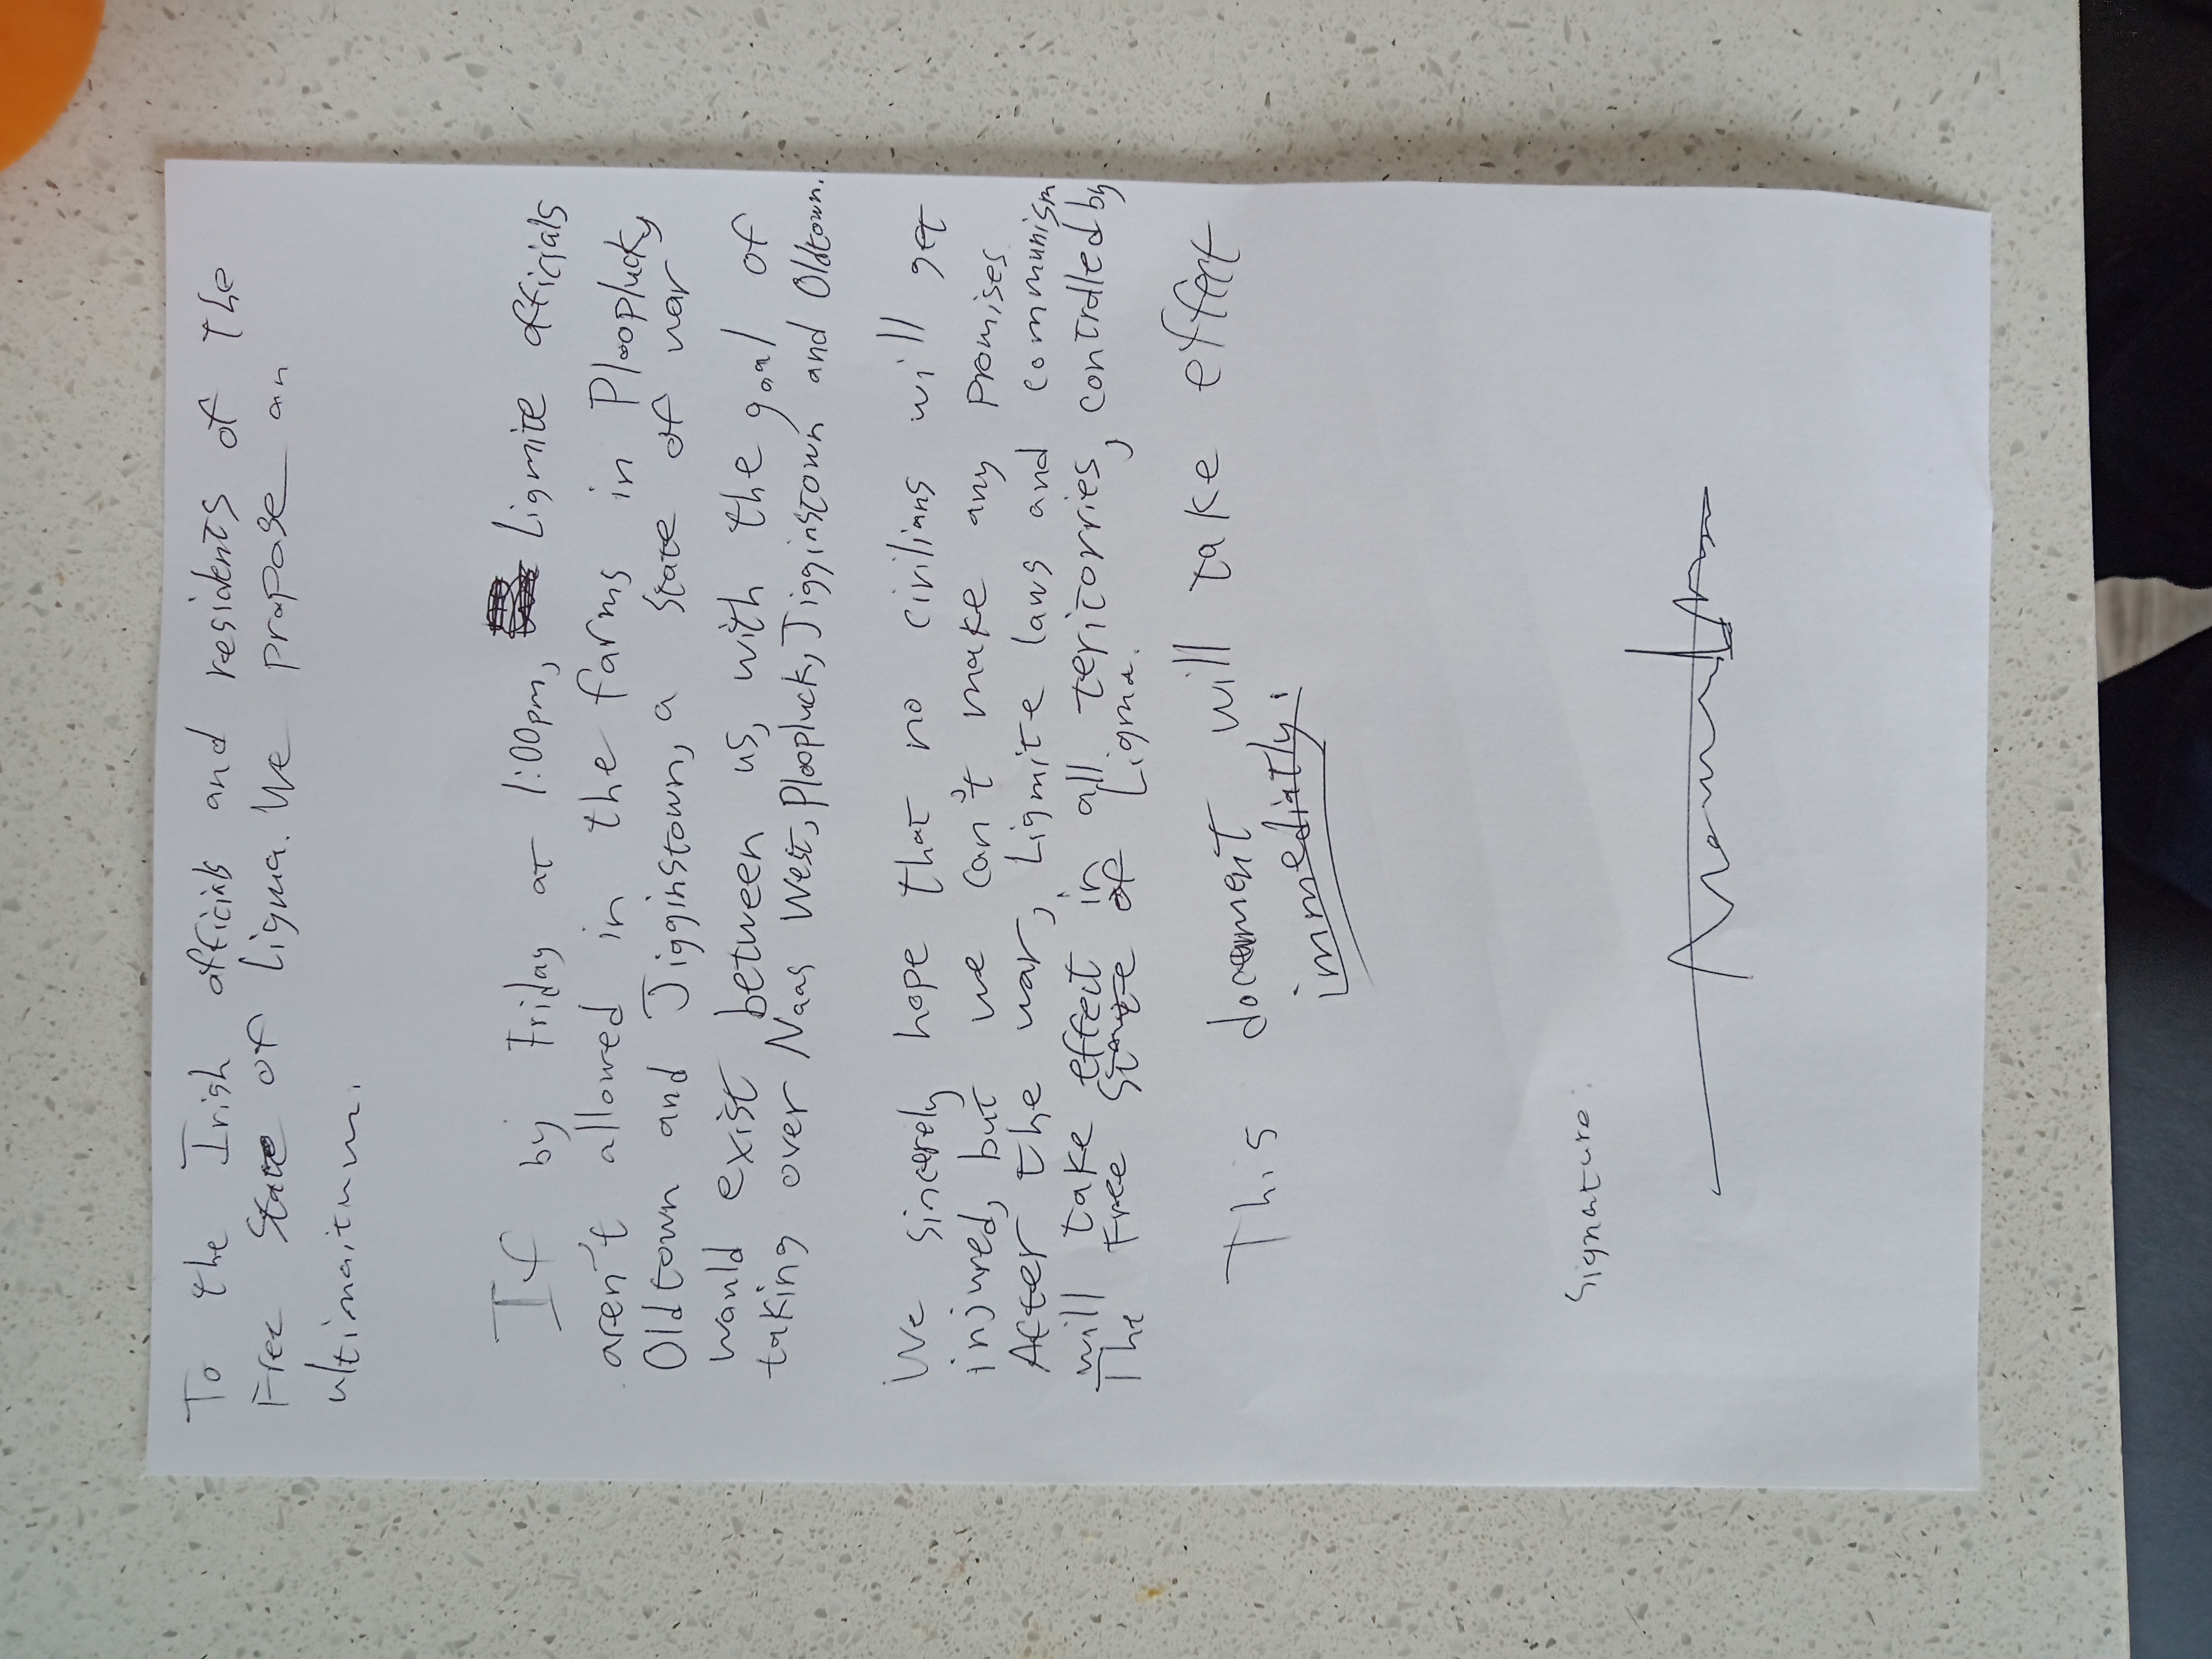 To the Irish officials and residents of the
Free State of Ligma. We propose an
ultimaitum.
If by Friday at 1:00pm, Ligmite officials
aren't allowed in the farms in Plooplucky
Oldtown and Jigginstown, a state of war
would exist between us, with the goal of
taking over Naas West, Ploopluck, Jigginstown and Oldtown.
We sincerely hope that no civilians will get
injured, but we can't make any promises
After the war, Ligmite laws and communism
will take effect in all teritorries, controlled by
The Free State of Ligma.
This document will take effect
immediatly!
Signature: